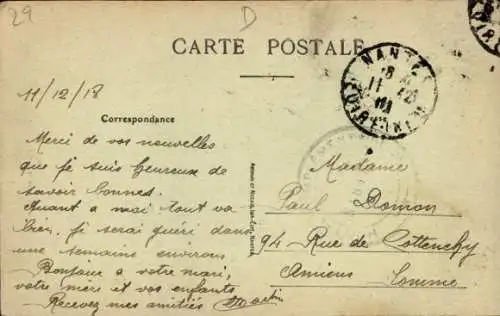 29
D
CARTE POSTALE
NANTES
11/12/18
Correspondance
Merci de vos nouvelles
que je suis heureux de
savoir bonnes.
Quant a moi tout va
bien, je serai guéri dans
une semaine environ
Bonjour a votre mari,
votre mère et vos enfants
Recevez mes amitiés Martin
Madame
Paul Domon
94 Rue de Cottenchy
Amiens Somme